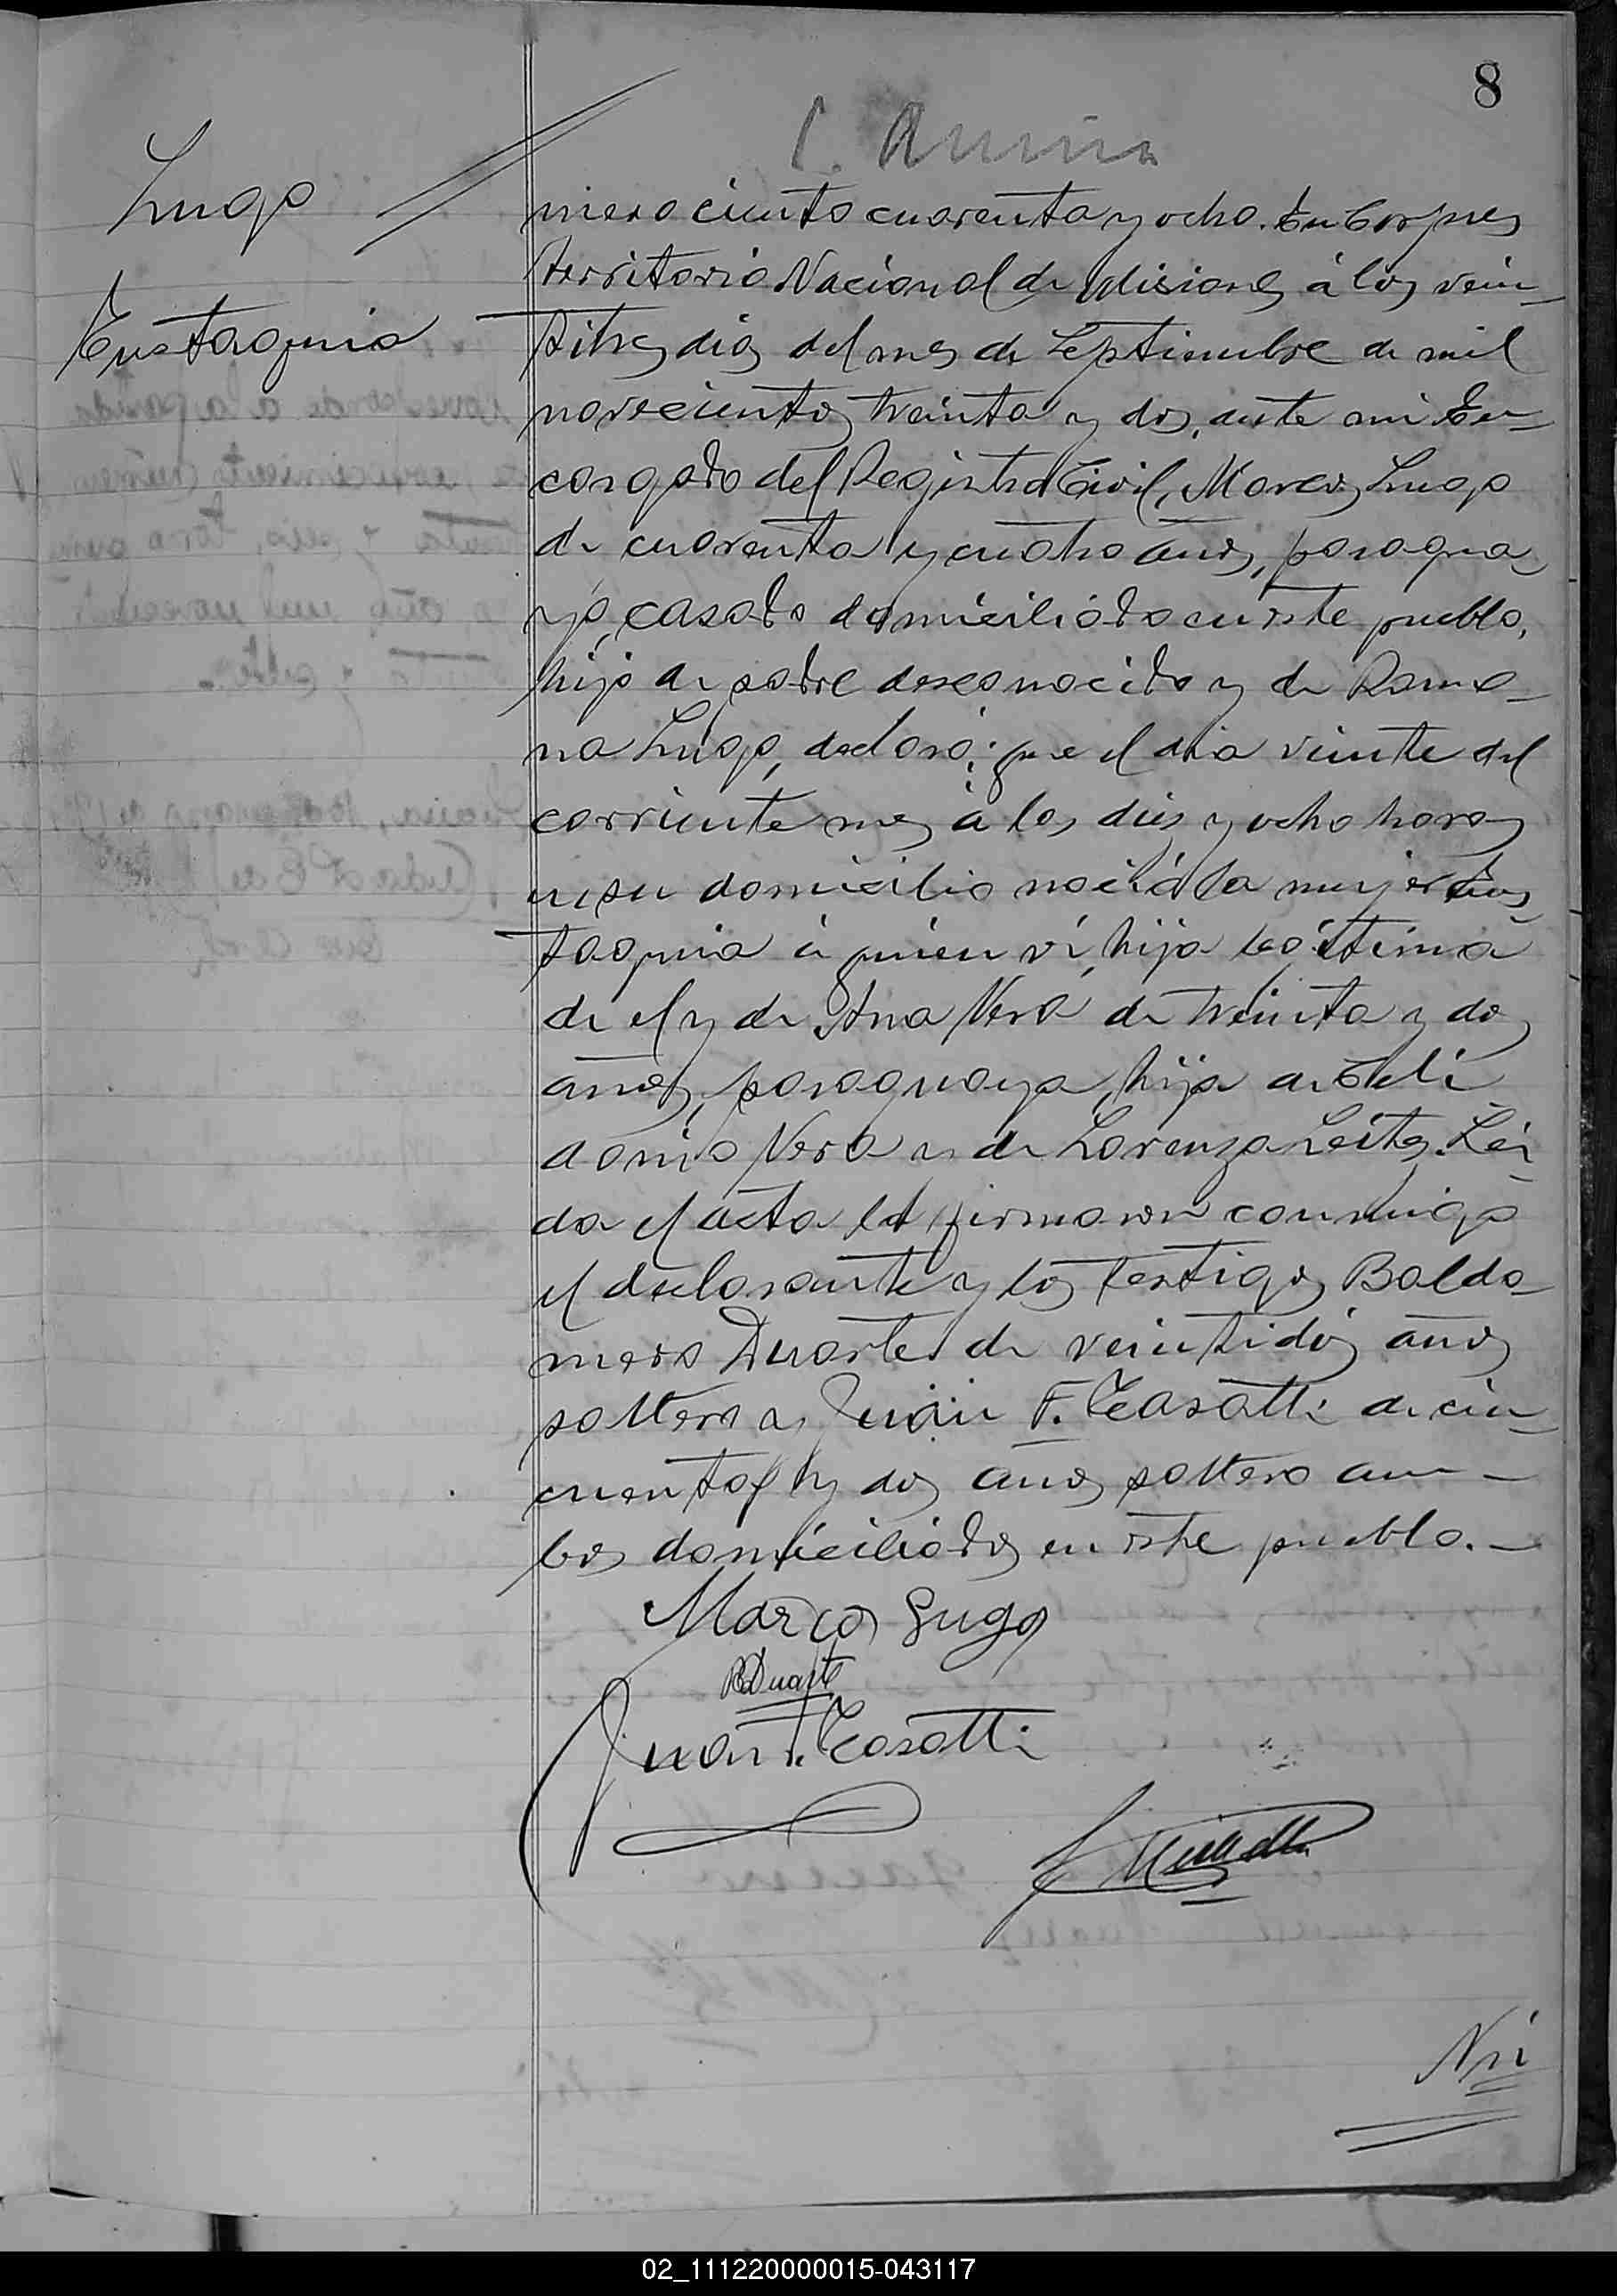 8
Lugo
Eustaquia
mero ciento cuarenta y ocho. En Corpus
Territorio Nacional de Misiones á los vein-
titres dias del mes de Septiembre de mil
novecientos treinta y dos, ante mi En-
cargado del Registro Civil, Marcos Lugo
de cuarenta y cuatro años, paragua-
yo, casado domiciliado en este pueblo,
hijo de padre desconocido y de Ramo-
na Lugo, declaró: que el dia veinte del
corriente mes á las dies y ocho horas
en su domicilio nació la mujer Eus-
taquia á quien ví, hija legítima
de el y de Ana Vera de treinta y dos
años, paraguaya, hija de Celi
donio Vera y de Lorenza Leites. Lei-
da el acta la firmaron conmigo
el declarante y los testigos Baldo-
mero Duarte de veintidós años
soltero y Juan F. Casatti de cin-
cuenta y dos años soltero am-
bos domiciliados en este pueblo.-
Marcos Lugo
BDuarte
Juan F. Casatti
Nú
02_111220000015-043117